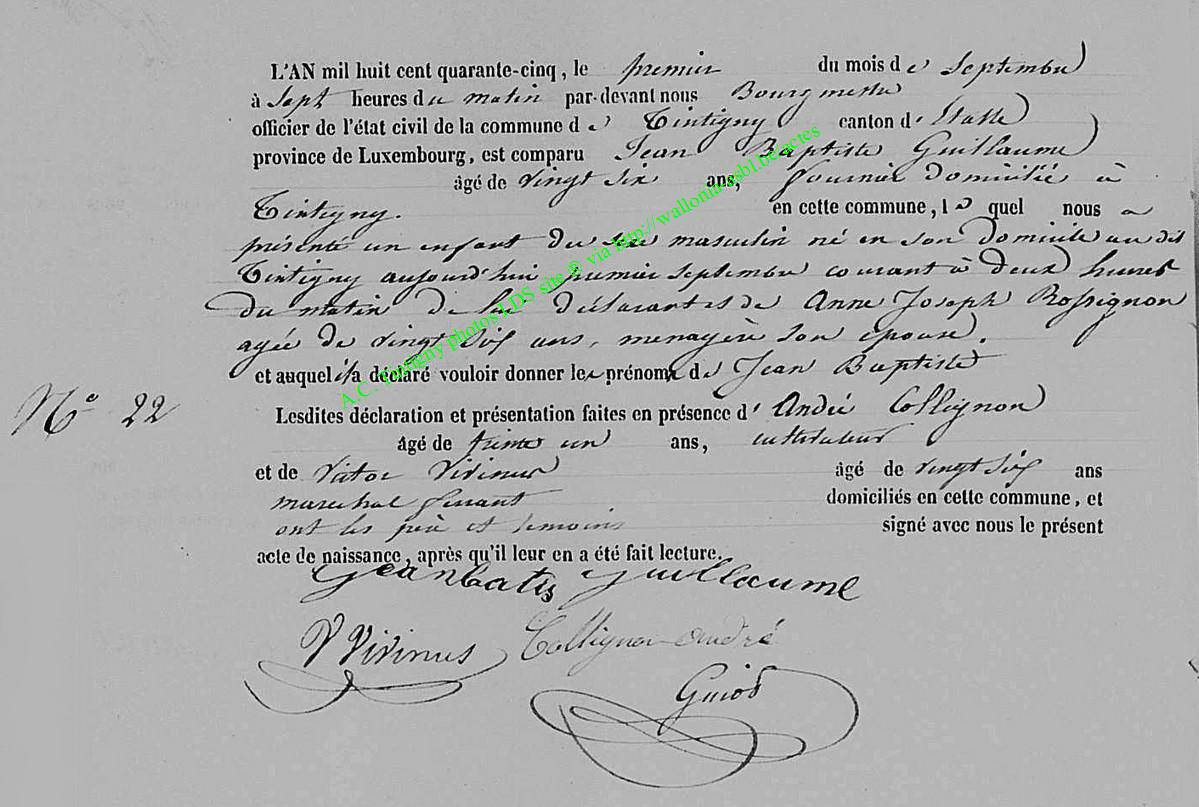 L'AN mil huit cent quarante-cinq, le premier du mois de Septembre
à Sept heures du matin par-devant nous Bourgmestre
officier de l'état civil de la commune de Tintigny canton d'Etalle
province de Luxembourg, est comparu Jean Baptiste Guillaume
âgé de vingt six ans, journier domicilié à
Tintigny. en cette commune, le quel nous a
présenté un enfant du sexe masculin né en son domicile au dit
Tintigny aujourd'hui premier septembre courant à deux heures
du matin de lui déclarant et de Anne Joseph Rossignon
agée de vingt six ans, menagère son epouse.
et auquel il a déclaré vouloir donner les prénoms de Jean Baptiste
N° 22
Lesdites déclaration et présentation faites en présence d'André Collignon
âgé de trente un ans, cultivateur
et de Victor Vivinus âgé de vingt six ans
marechal ferrant domiciliés en cette commune, et
ont les père et temoins signé avec nous le présent
acte de naissance, après qu'il leur en a été fait lecture.
Geanbatis Guillaume
V Vivinus Collignon André
Guiot
A.C. Tintigny photos LDS site ® via http://wallonia-asbl.be/actes